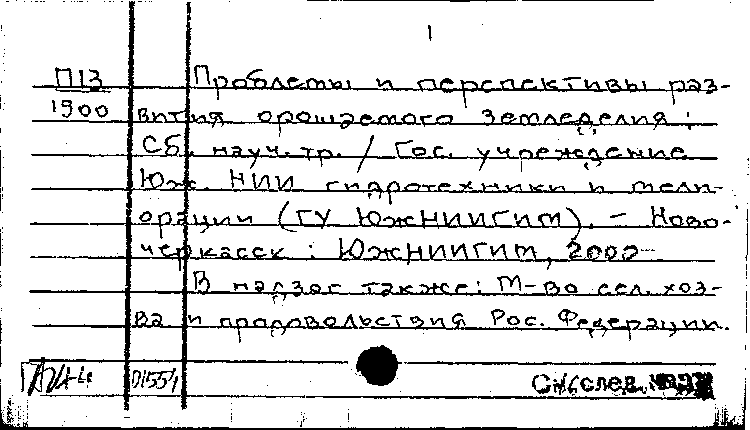 1
П13 Проблемы и перспективы раз-
1900 вития орошаемого земледелия :
Сб. науч. тр. / Гос. учреждение
Юж. НИИ гидротехники и мели-
орации (ГУ ЮжНИИГиМ). – Ново-
черкасск : ЮжНИИГиМ, 2000-
В надзаг также: М-во сел. хоз-
ва и продовольствия Рос. Федерации.
D1554 См. след.